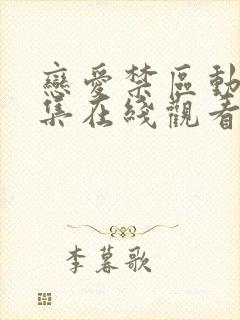 戀愛禁區動
集在綫觀看
李暮歌